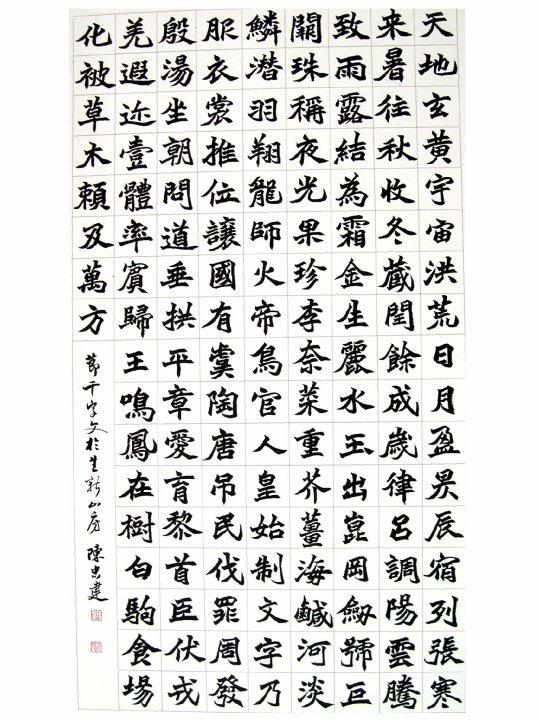 天地玄黃宇宙洪荒日月盈昃辰宿列張寒
来暑往秋收冬藏閏餘成歲律呂調陽雲騰
致雨露結為霜金生麗水玉出崑岡劒號巨
闕珠稱夜光果珍李奈菜重芥薑海鹹河淡
鱗潜羽翔龍師火帝鳥官人皇始制文字乃
服衣裳推位讓國有虞陶唐吊民伐罪周發
殷湯坐朝問道垂拱平章愛育黎首臣伏戎
羌遐迩壹體率賓歸王鳴鳳在樹白駒食場
化被草木賴及萬方
節千字文於生新山房 陳忠建